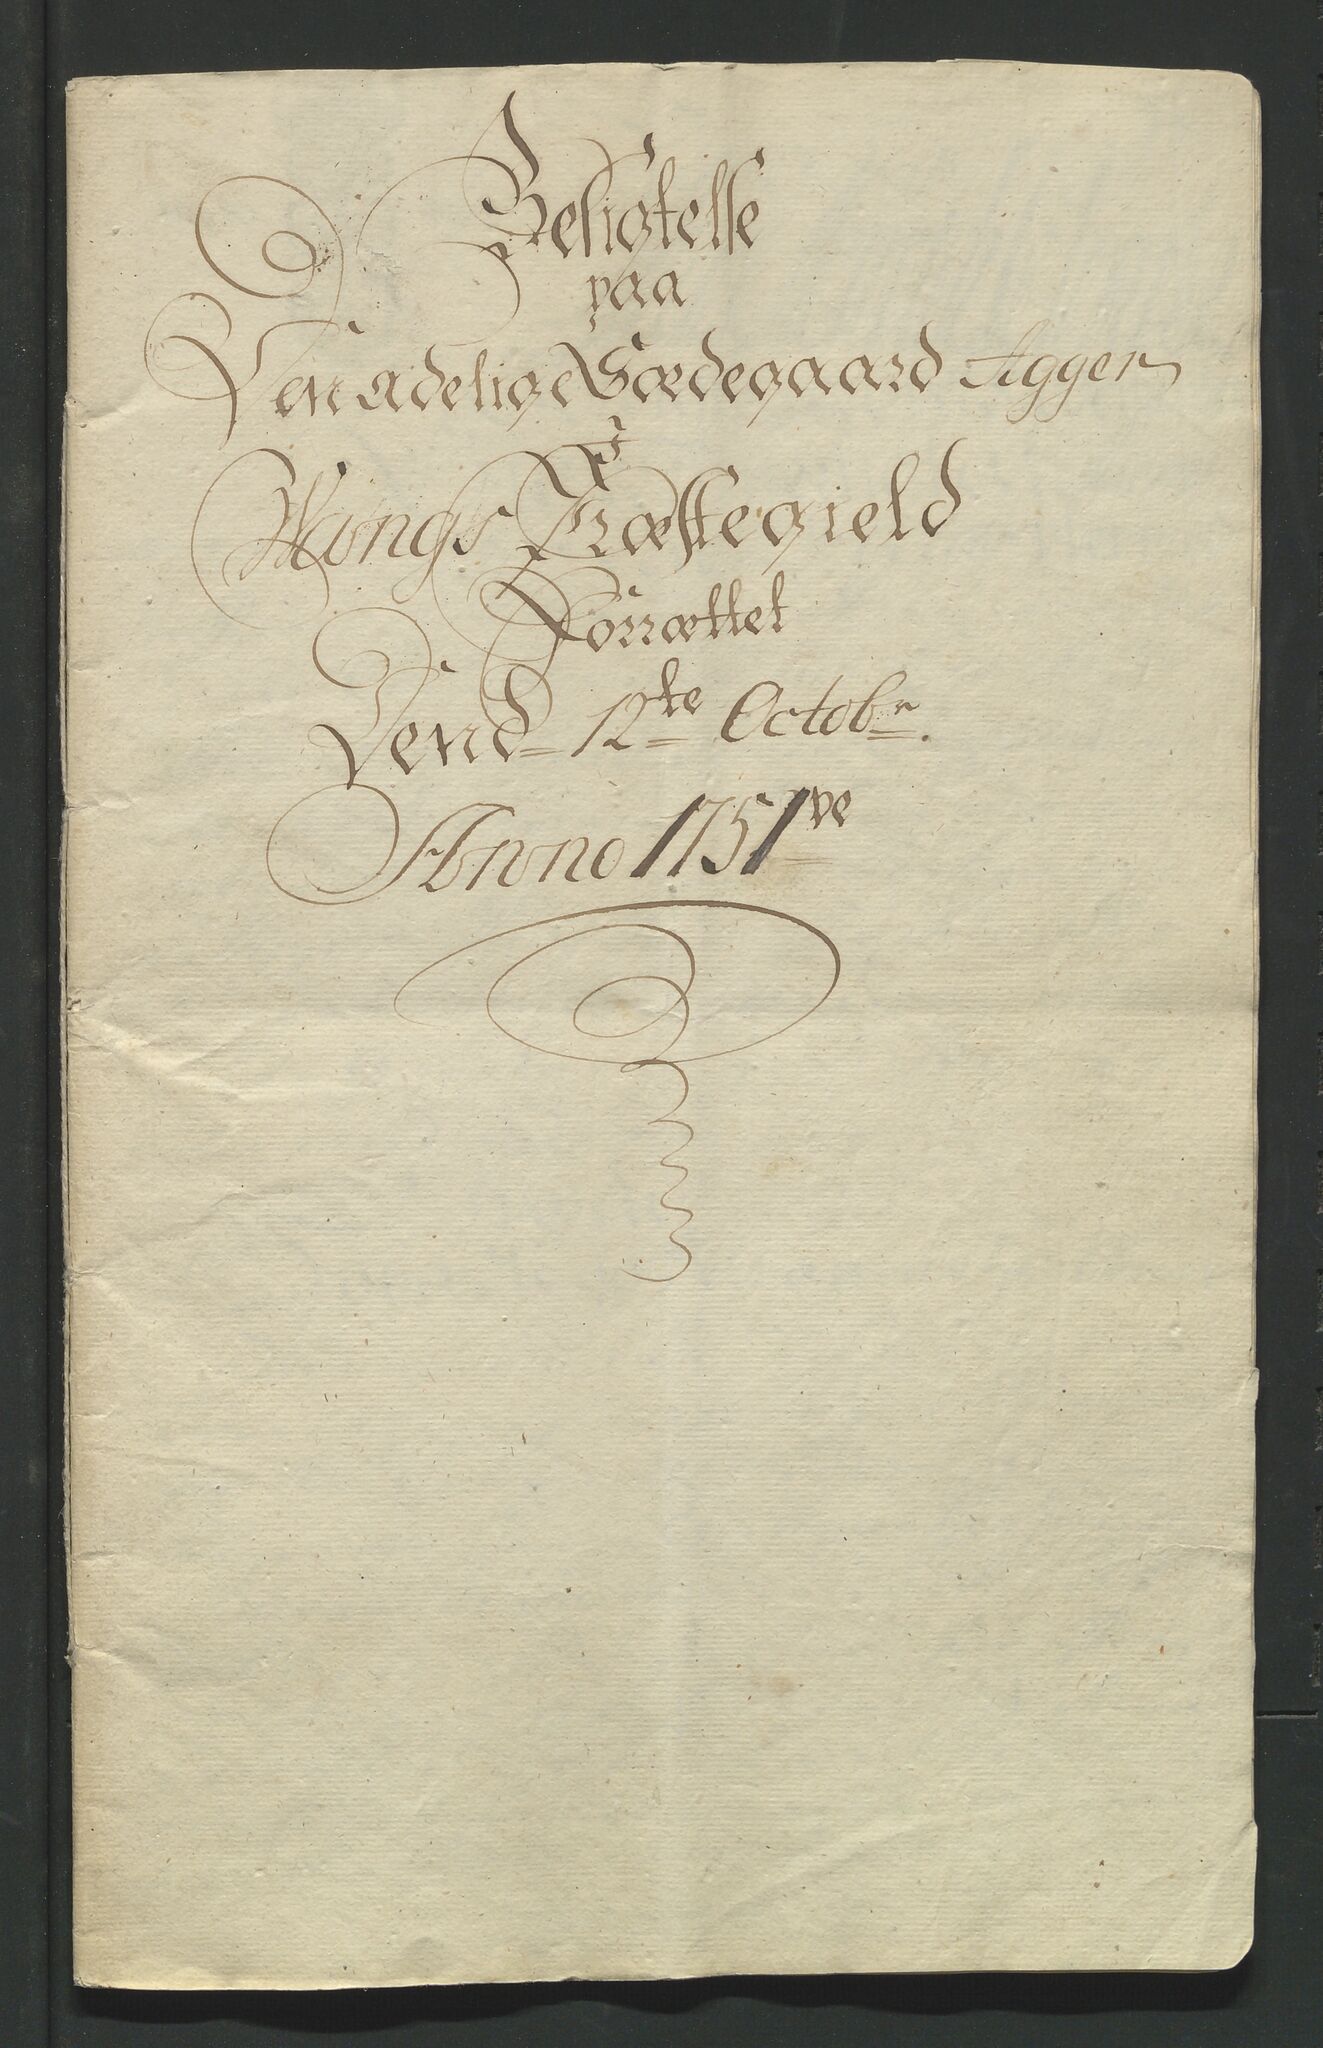 Besigtelse
paa
Den adelige Sædegaard Agger
I
Wangs Præstegield
Forrættet
Dend 12te Octobr.
Anno 1751ve